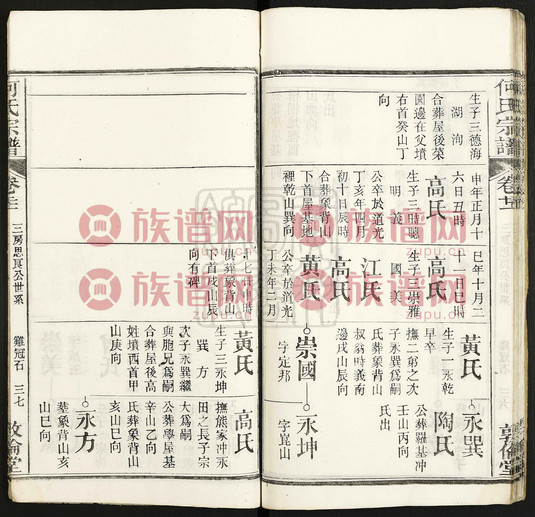 何氏宗譜
卷廿一
敦倫堂
生子三德海
湖洵
合葬屋後菜
園邊在父墳
右首癸山丁
向
申年正月十
六日丑時
高氏
生子三時聰
明義
公卒於道光
丁亥年四月
初十日辰時
合葬象背山
下首屋基地
裡乾山巽向
巳年十月二
十一日巳時
高氏
生子三崇雅
國美
江氏
高氏
黃氏
公卒於道光
丁未年二月
黃氏
生子一永乾
早卒
撫二弟之次
子永巽爲嗣
叔翁時義南
氏葬象背山
邊戌山辰向
崇國
字定邦
永巽
陶氏
公葬羅基冲
壬山丙向
氏出
永坤
字崑山
何氏宗譜
卷廿一
三房思良公世系
雞冠石
三七
敦倫堂
初七日巳時
俱葬象背山
下首戌山辰
向有碑
黃氏
生子三永坤
巽方
次子永巽繼
與胞兄爲嗣
合葬屋後高
姓墳西首甲
山庚向
高氏
撫熊家冲永
田之長子宗
大爲嗣
公葬學屋基
辛山乙向
氏葬象背山
亥山巳向
永方
葬象背山亥
山巳向
族谱网
zupu.cn